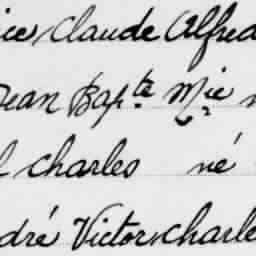 ice, Claude Alfred
Jean Bapte Mie
l charles né
dré Victor, charle